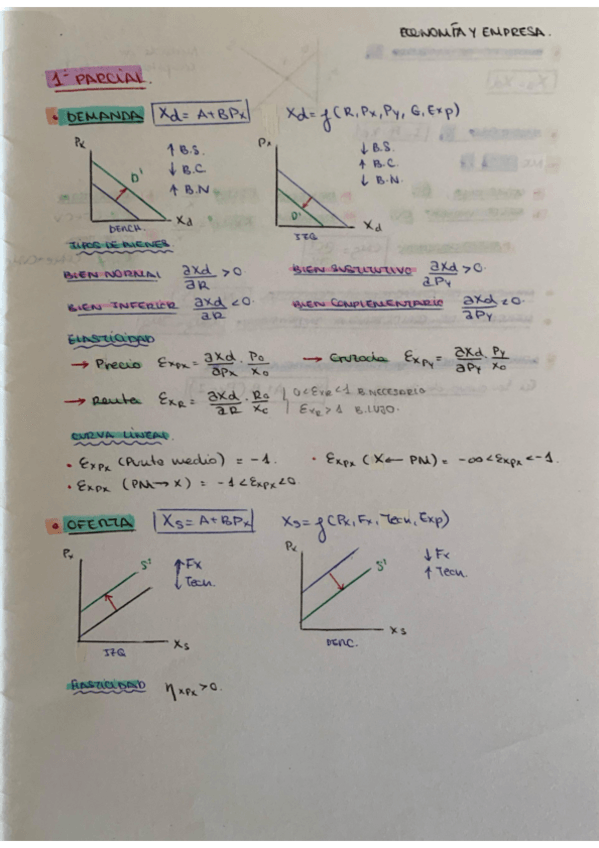 ECONOMÍA Y EMPRESA.
1er PARCIAL.
• DEMANDA Xd = A+BPx Xd = f (R, Px, Py, G, Exp)
Px ↑ B.S. Px ↓ B.S.
↓ B.C. ↑ B.C.
D' ↑ B.N ↓ B.N.
D'
Xd Xd
DERCH. IZQ
TIPOS DE BIENES
BIEN NORMAL ∂Xd/∂R > 0 BIEN SUSTITUTIVO ∂Xd/∂Py > 0.
BIEN INFERIOR ∂Xd/∂R < 0. BIEN COMPLEMENTARIO ∂Xd/∂Py < 0.
ELASTICIDAD
→ Precio ƐxPx = ∂Xd/∂Px · P0/X0 → Cruzada ƐxPy = ∂Xd/∂Py · Py/X0
→ Renta ƐxR = ∂Xd/∂R · R0/X0 | 0 < ƐxR < 1 B. NECESARIO
| ƐxR > 1 B. LUJO.
CURVA LINEAL.
• ƐxPx (Punto medio) = -1. • ƐxPx (X ← PM) = -∞ < ƐxPx < -1.
• ƐxPx (PM → X) = -1 < ƐxPx < 0
• OFERTA Xs = A+BPx Xs = f (Px, Fx, Tecn, Exp)
Px S' ↑ Fx Px S' ↓ Fx
↓ Tecn. ↑ Tecn.
Xs Xs
IZQ DERC.
ELASTICIDAD ηxPx > 0.